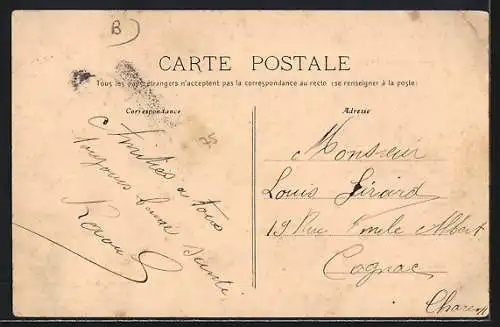 B)
CARTE POSTALE
Tous les pays étrangers n'acceptent pas la correspondance au recto (se renseigner à la poste)
Correspondance
Adresse
Amitiés a tous
toujours bonne santé.
Raoul
Monsieur
Louis Girard
19 Rue Emile Albert
Cognac